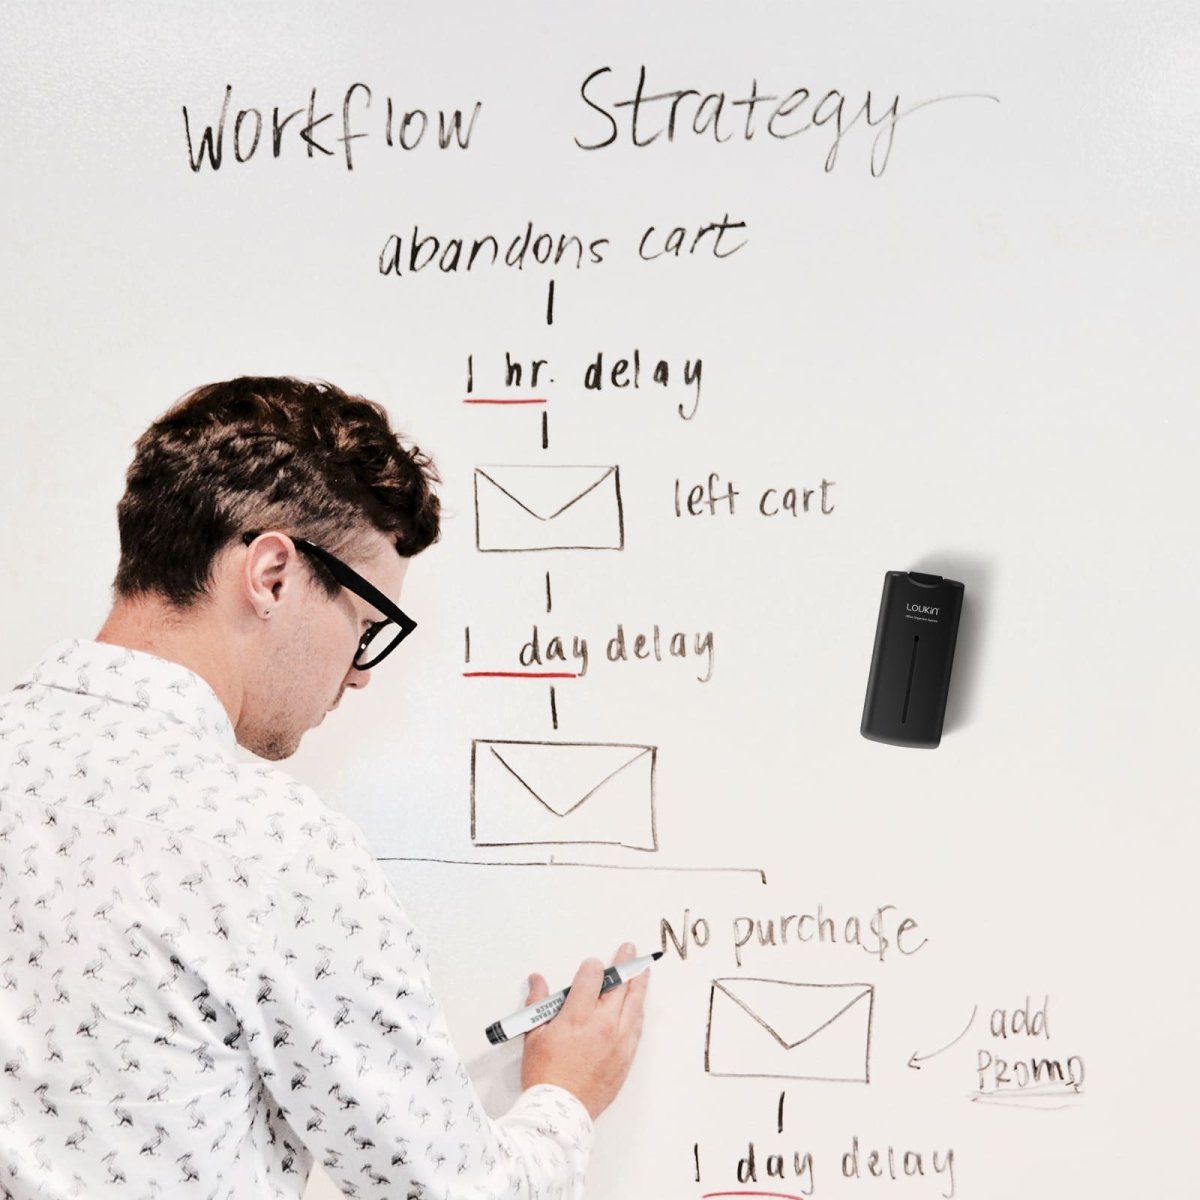 Workflow Strategy
abandons cart
1 hr. delay
left cart
1 day delay
LOUKIN
No purcha$e
DRY ERASE
MARKER
add
PROMO
1 day delay